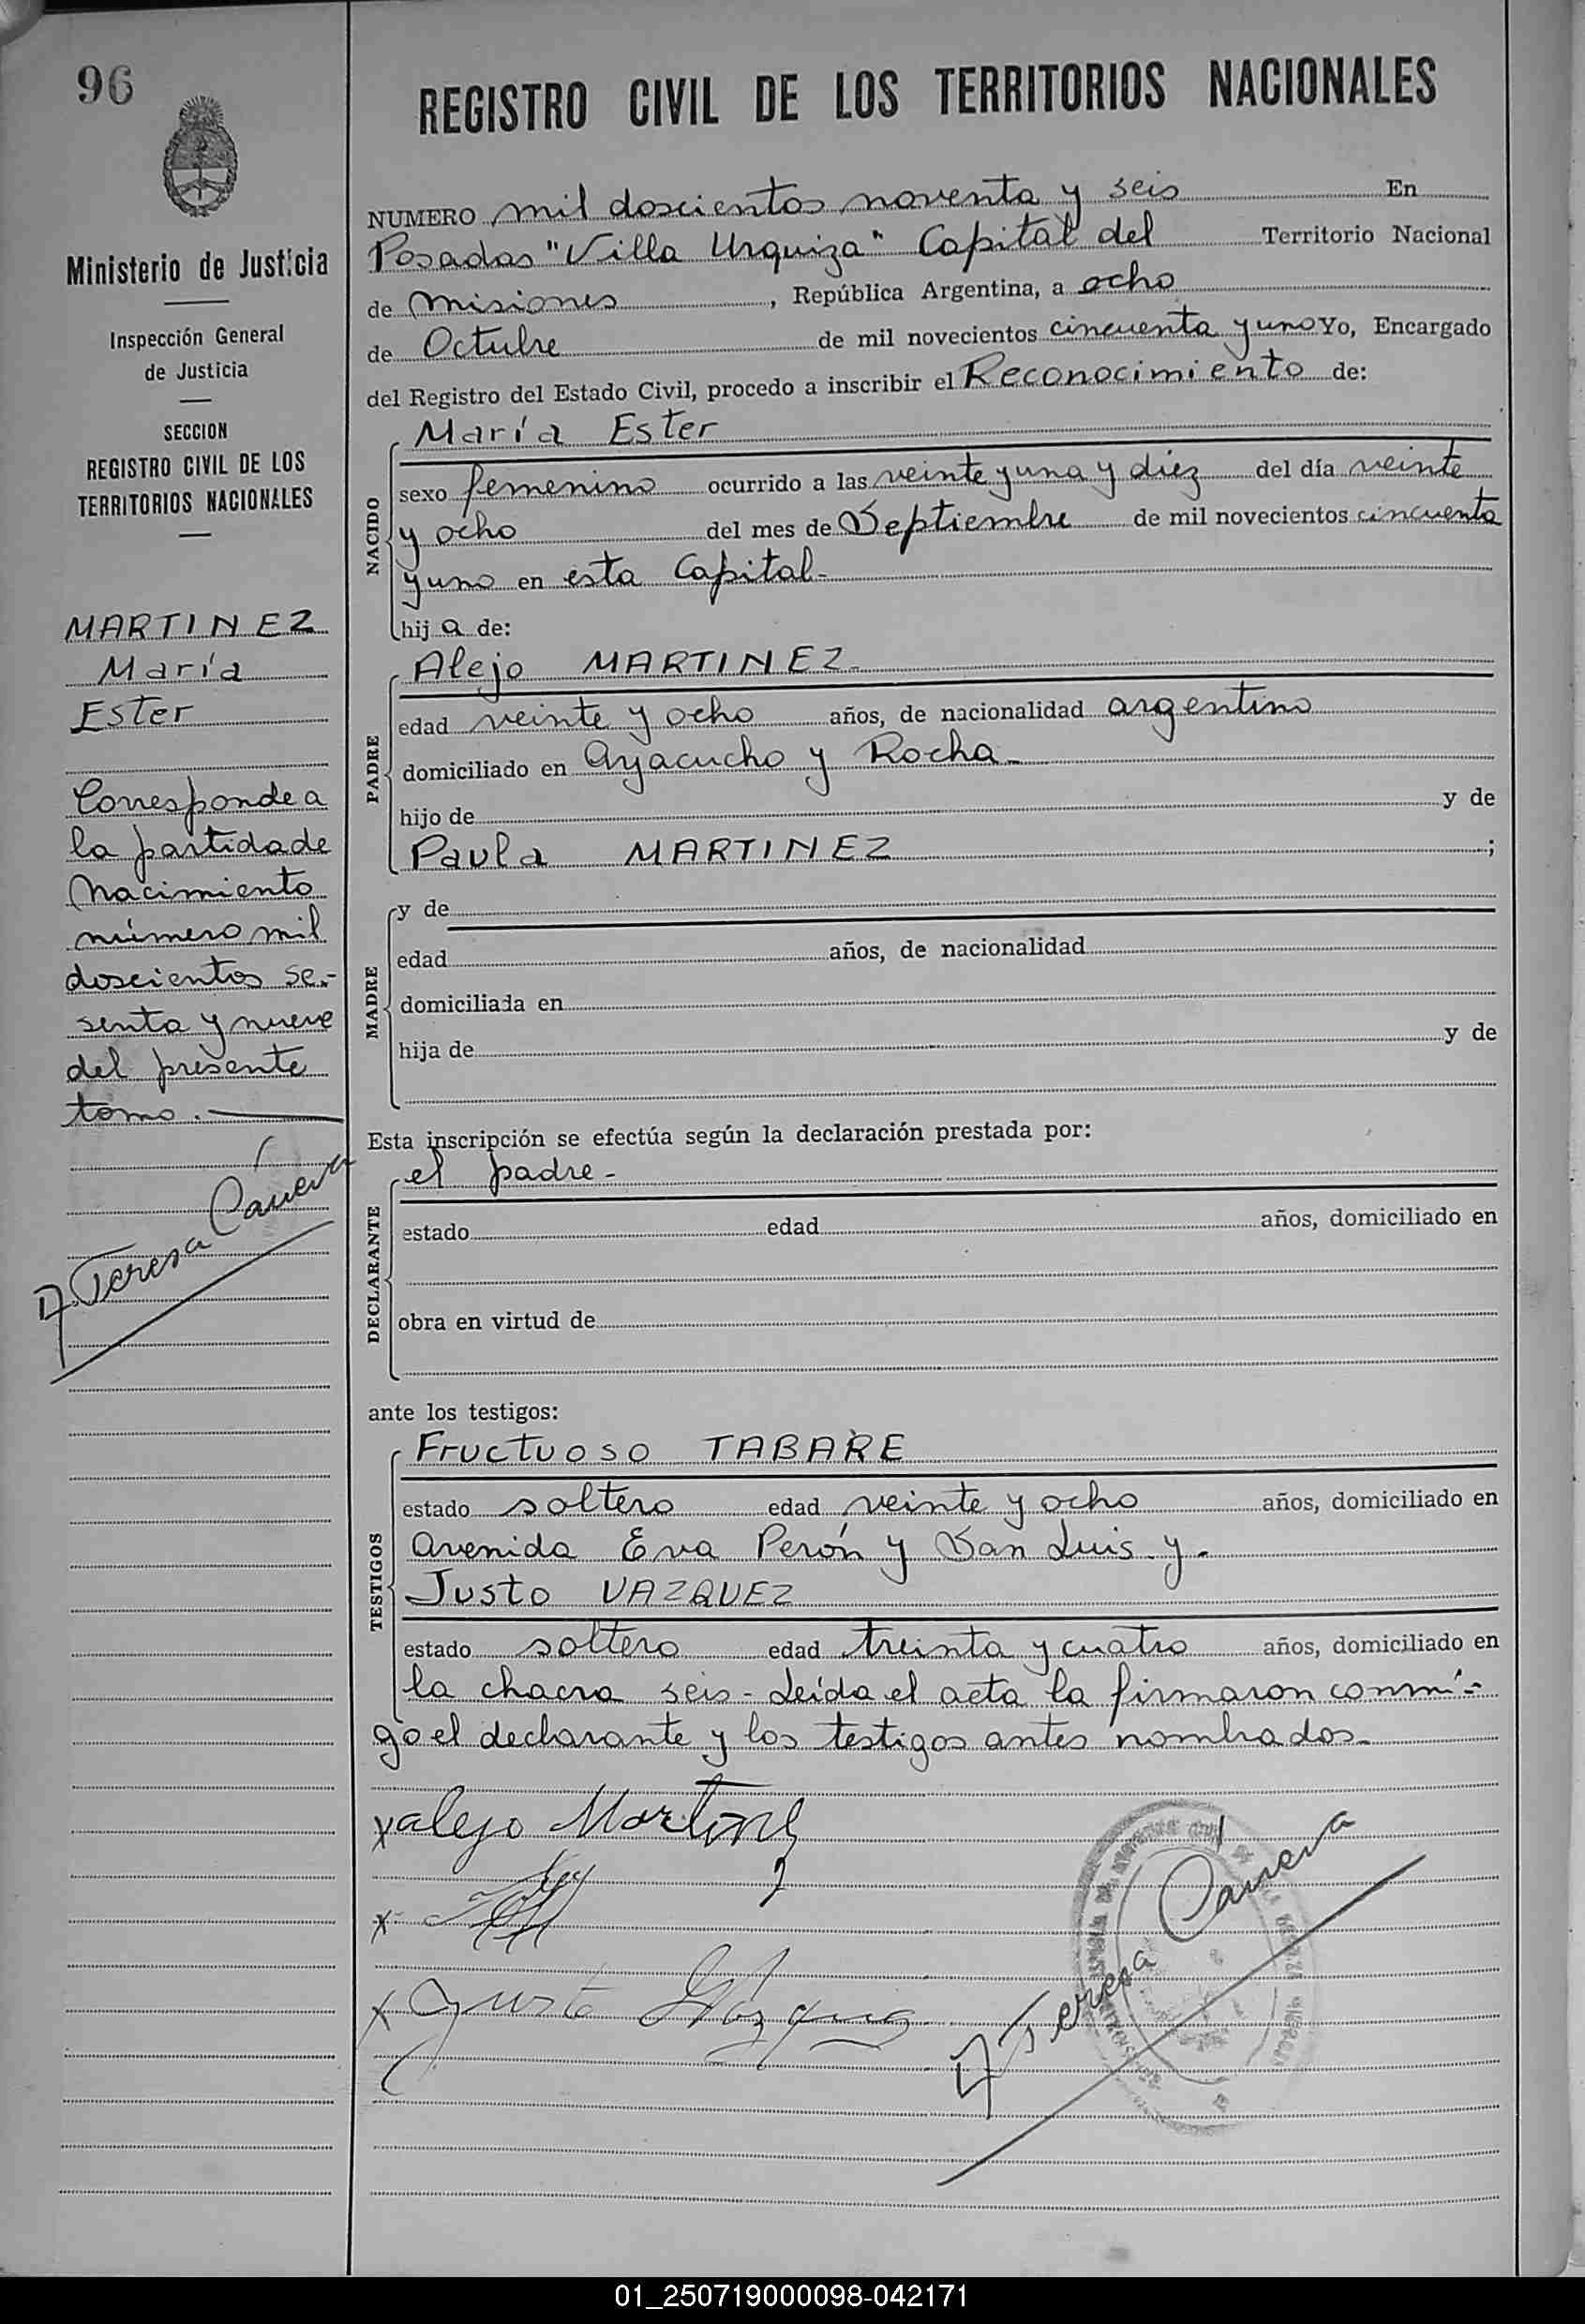 96
REGISTRO CIVIL DE LOS TERRITORIOS NACIONALES
Ministerio de Justicia
Inspección General
de Justicia
SECCION
REGISTRO CIVIL DE LOS
TERRITORIOS NACIONALES
MARTINEZ
María
Ester
Corresponde a
la partida de
Nacimiento
número mil
doscientos se-
senta y nueve
del presente
tomo.
A. Teresa Cáneva
NUMERO mil doscientos noventa y seis En
Posadas "Villa Urquiza" Capital del Territorio Nacional
de Misiones, República Argentina, a ocho
de Octubre de mil novecientos cincuenta y uno Yo, Encargado
del Registro del Estado Civil, procedo a inscribir el Reconocimiento de:
NACIDO
María Ester
sexo femenino ocurrido a las veinte y una y diez del día veinte
y ocho del mes de Septiembre de mil novecientos cincuenta
y uno en esta Capital-
hija de:
PADRE
Alejo MARTINEZ-
edad veinte y ocho años, de nacionalidad argentino
domiciliado en Ayacucho y Rocha-
hijo de y de
Paula MARTINEZ ;
MADRE
y de
edad años, de nacionalidad
domiciliada en
hija de y de
Esta inscripción se efectúa según la declaración prestada por:
DECLARANTE
el padre-
estado edad años, domiciliado en
obra en virtud de
ante los testigos:
TESTIGOS
Fructuoso TABARE
estado soltero edad veinte y ocho años, domiciliado en
Avenida Eva Perón y San Luis y-
Justo VAZQUEZ
estado soltero edad treinta y cuatro años, domiciliado en
la chacra seis- Leída el acta la firmaron conmi-
go el declarante y los testigos antes nombrados-
x alejo Martinez
x
x Justo Vázquez
A Teresa Cáneva
01_250719000098-042171